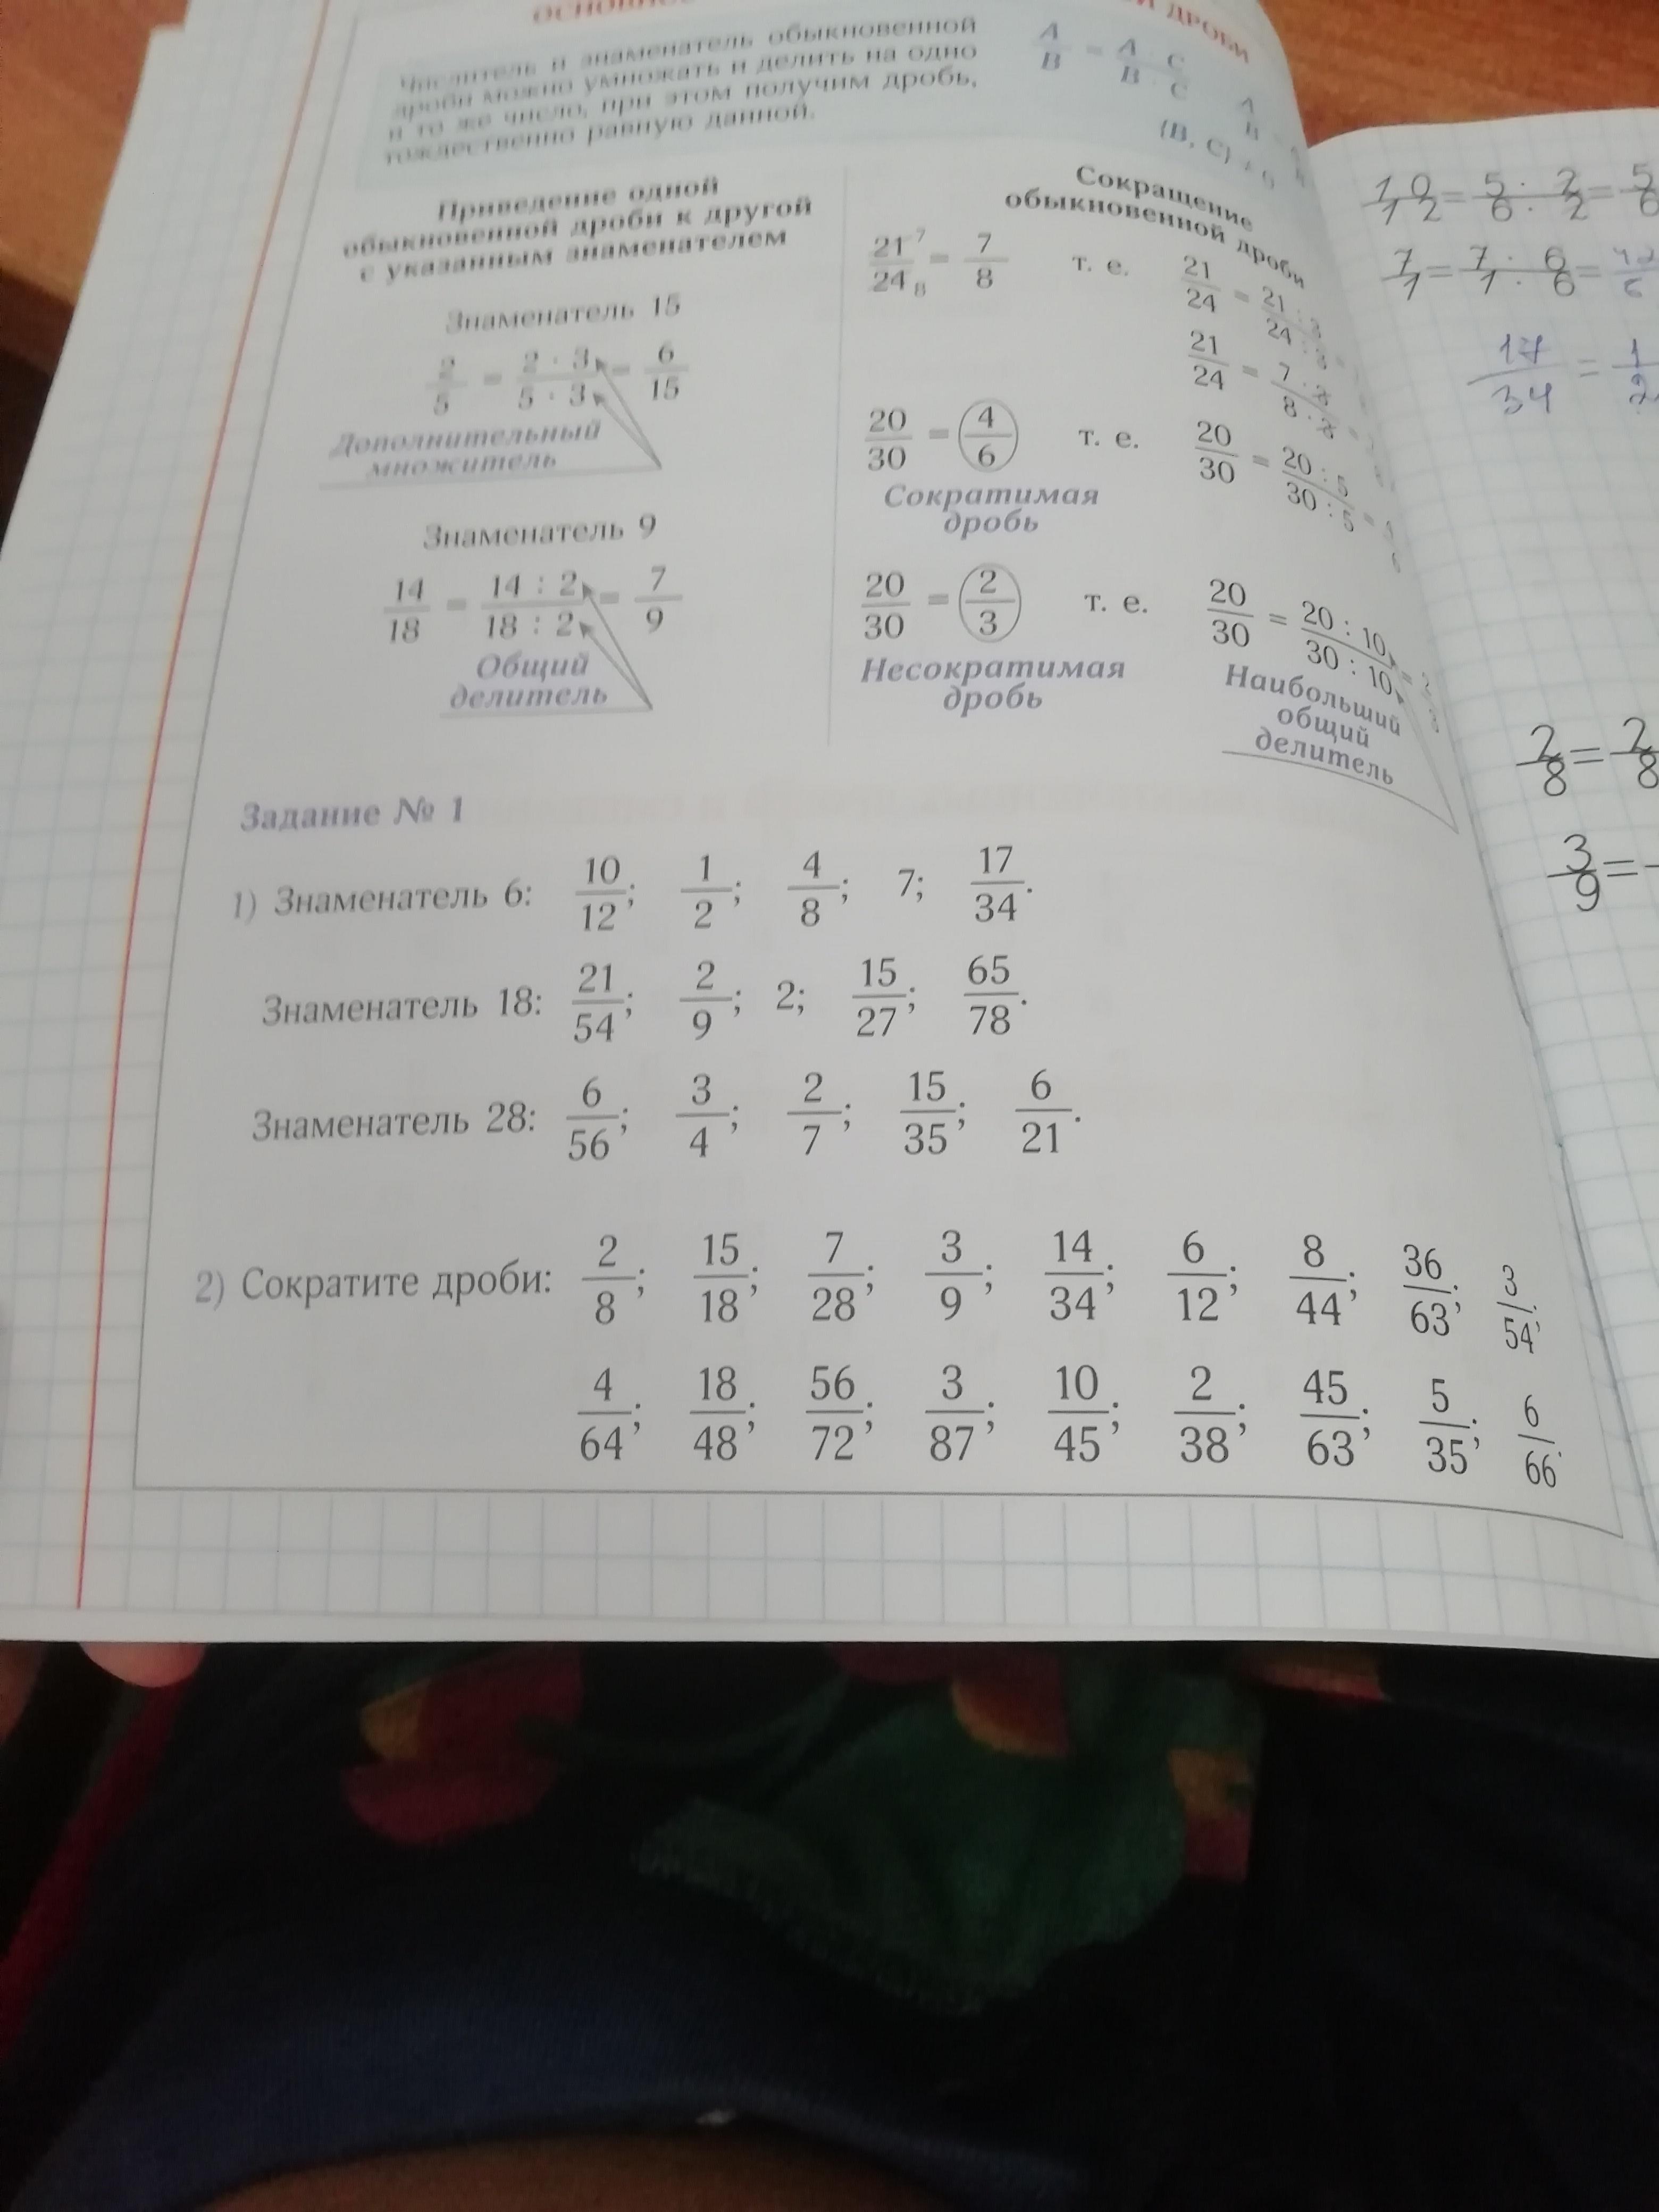 ДРОБИ
Числитель и знаменатель обыкновенной
дроби можно умножать и делить на одно
и то же число, при этом получим дробь,
тождественно равную данной.
A/B = A · C/B · C
(B, C) ≠ 0
Приведение одной
обыкновенной дроби к другой
с указанным знаменателем
Знаменатель 15
2/5 = 2 · 3/5 · 3 = 6/15
Дополнительный
множитель
Знаменатель 9
14/18 = 14 : 2/18 : 2 = 7/9
Общий
делитель
Сокращение
обыкновенной дроби
21 7/24 8 = 7/8 т. е. 21/24 = 21
21/24 = 7
20/30 = 4/6 т. е. 20/30 = 20 : 5/30 : 5 =
Сократимая
дробь
20/30 = 2/3 т. е. 20/30 = 20 : 10/30 : 10 =
Несократимая
дробь
Наибольший
общий
делитель
Задание № 1
1) Знаменатель 6: 10/12; 1/2; 4/8; 7; 17/34.
Знаменатель 18: 21/54; 2/9; 2; 15/27; 65/78.
Знаменатель 28: 6/56; 3/4; 2/7; 15/35; 6/21.
2) Сократите дроби: 2/8; 15/18; 7/28; 3/9; 14/34; 6/12; 8/44; 36/63; 3/54;
4/64; 18/48; 56/72; 3/87; 10/45; 2/38; 45/63; 5/35; 6/66.
10/12 = 5 · 2/6 · 2 = 5/6
7/1 = 7 · 6/1 · 6 = 42/6
17/34 = 1/2
2/8 = 2/8
3/9 =